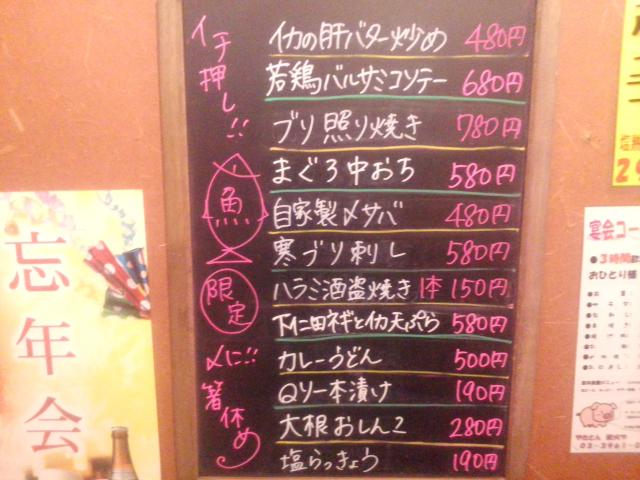 イチ押し!!
イカの肝バター炒め 480円
若鶏バルサミコソテー 680円
ブリ照り焼き 780円
魚
まぐろ中おち 580円
自家製〆サバ 480円
寒ブリ刺し 580円
限定
ハラミ酒盗焼き 1本 150円
下仁田ネギとイカ天ぷら 580円
〆に!!
カレーうどん 500円
箸休め
Qソー本漬け 190円
大根おしんこ 280円
塩らっきょう 190円
忘年会
宴会コー
●3時間
おひとり様